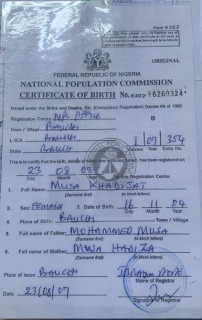 ORIGINAL
FEDERAL REPUBLIC OF NIGERIA
NATIONAL POPULATION COMMISSION
CERTIFICATE OF BIRTH
Issued under the Births and Deaths, Etc (Compulsory Registration) Decree 69 of 1992
Registration Centre NPC OFFICE B
Town / Village BAUCHI
L.G.A BAUCHI 09 354
State BAUCHI Volume Entry No.
This is to certify that the birth, details of which are recorded herein, has been registered on
23 08 07
Day Month Year at this Registration Centre
1. Full Name: MUSA KHADIJAT
(Surname first) (in block letters)
2. Sex: FEMALE 3. Date of Birth: 16 11 04
Day Month Year
4. Place of Birth: BAUCHI Town / Village
5. Full name of Father: MOHAMMED MUSA
(Surname first) (in block letters)
6. Full name of Mother: MUSA HADIZA
(Surname first) (in block letters)
Place of Issue BAUCHI
Name of Registrar
Date: 23/08/07
Signature of Registrar